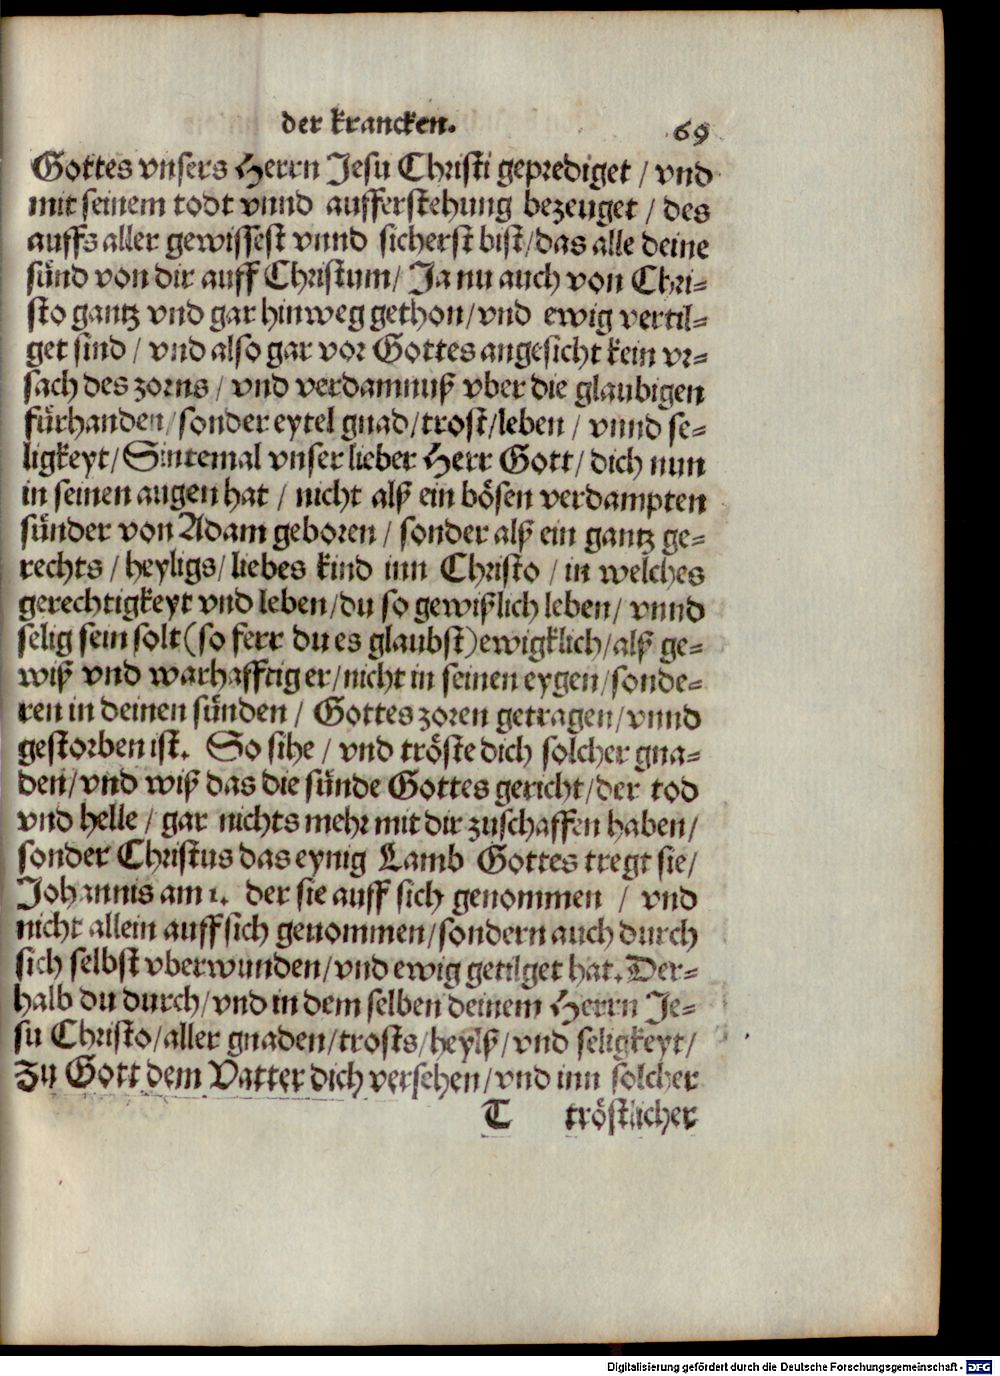 der krancken. 69
Gottes vnsers Herrn Jesu Christi geprediget / vnd
mit seinem todt vnnd aufferstehung bezeuget / des
auffs aller gewissest vnnd sicherst bist/das alle deine
sünd von dir auff Christum/ Ja nu auch von Chri-
sto gantz vnd gar hinweg gethon/vnd ewig vertil-
get sind / vnd also gar vor Gottes angesicht kein vr-
sach des zorns / vnd verdamnuß vber die glaubigen
fürhanden/sonder eytel gnad/trost/leben / vnnd se-
ligkeyt/Sintemal vnser lieber Herr Gott/ dich nun
in seinen augen hat / nicht alß ein bösen verdampten
sünder von Adam geboren / sonder alß ein gantz ge-
rechts / heyligs/liebes kind inn Christo / in welches
gerechtigkeyt vnd leben/du so gewißlich leben/ vnnd
selig sein solt(so ferr du es glaubst)ewigklich/alß ge-
wiß vnd warhafftig er/nicht in seinen eygen/sonde-
ren in deinen sünden / Gottes zoren getragen/vnnd
gestorben ist. So sihe / vnd tröste dich solcher gna-
den/vnd wiß das die sünde Gottes gericht/der tod
vnd helle / gar nichts mehr mit dir zuschaffen haben/
sonder Christus das eynig Lamb Gottes tregt sie/
Johannis am 1. der sie auff sich genommen / vnd
nicht allein auff sich genommen/sondern auch durch
sich selbst vberwunden/vnd ewig getilget hat. Der-
halb du durch/vnd in dem selben deinem Herrn Je-
su Christo/aller gnaden/trosts/heylß/vnd seligkeyt/
Zu Gott dem Vatter dich versehen/vnd inn solcher
T tröstlicher
Digitalisierung gefördert durch die Deutsche Forschungsgemeinschaft - DFG